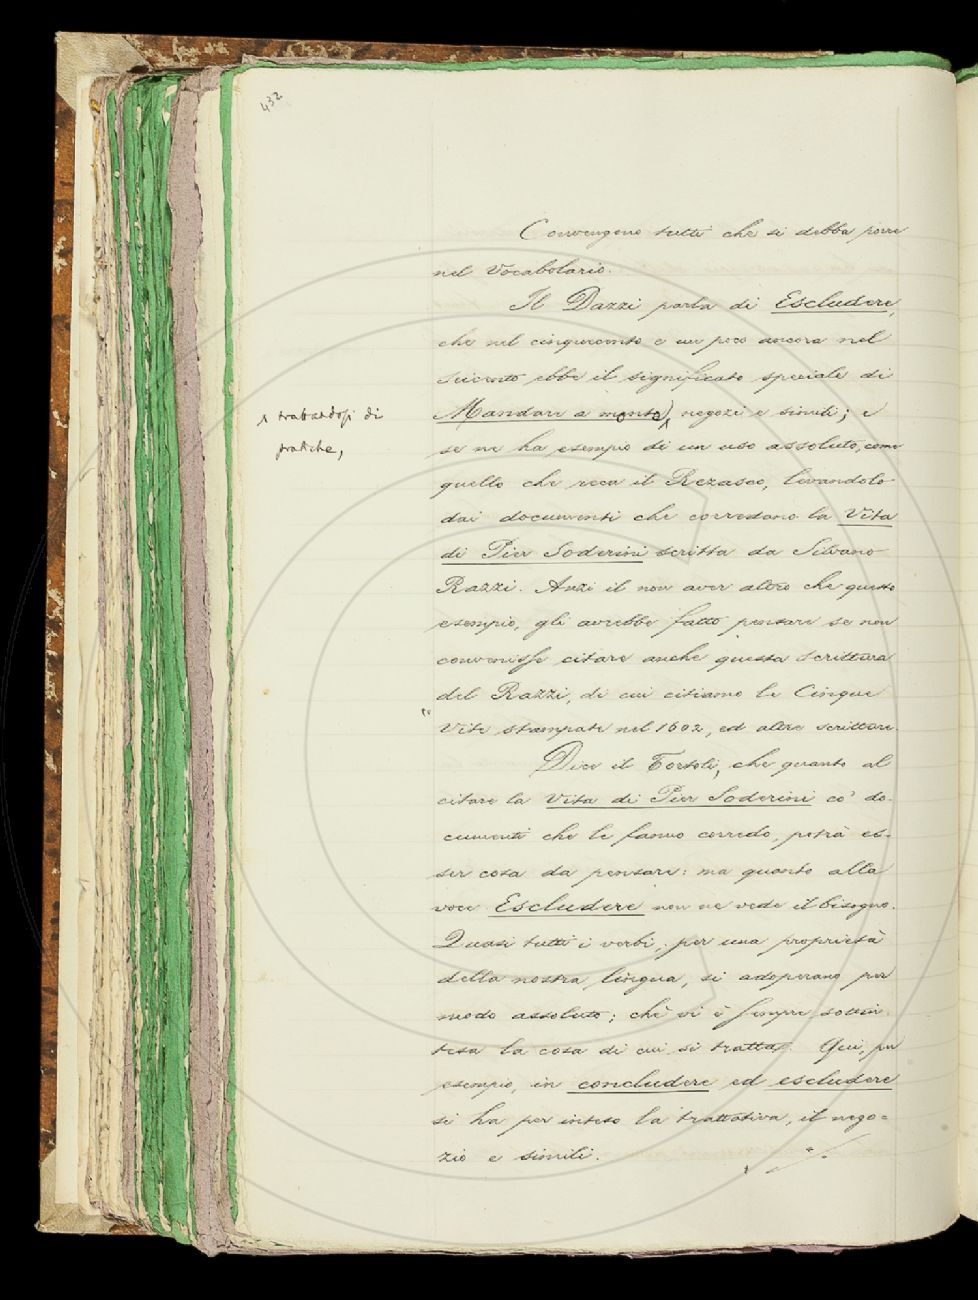 432
Convengono tutti che si debba porre
nel Vocabolario.
Il Dazzi parla di Escludere,
che nel cinquecento e un poco ancora nel
seicento ebbe il significato speciale di
Mandare a monte, negozi e simili; e
trattandosi di
pratiche,
se ne ha esempio di un uso assoluto, come
quello che reca il Rezasco, levandolo
dai documenti che corredano la Vita
di Pier Soderini scritta da Silvano
Razzi. Anzi il non aver altro che questo
esempio, gli avrebbe fatto pensare se non
convenisse citare anche questa scrittura
del Razzi, di cui citiamo le Cinque
Vite stampate nel 1602, ed altre scritture.
Dice il Tortoli, che quanto al
citare la Vita di Pier Soderini co' do-
cumenti che le fanno corredo, potrà es-
ser cosa da pensare: ma quanto alla
voce Escludere non ne vede il bisogno.
Quasi tutti i verbi, per una proprietà
della nostra lingua, si adoperano per
modo assoluto; chè vi è sempre sottin
tesa la cosa di cui si tratta. Qui, per
esempio, in concludere ed escludere
si ha per inteso la trattativa, il nego=
zio e simili.